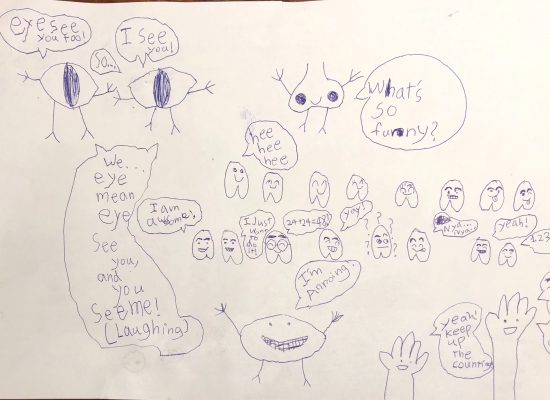 eye see
you too!
I see
you!
So...
What's
so
funny?
hee
hee
hee
We...
eye
mean
eye
see
you,
and
you
see me!
(Laughing)
I am
awesome!
I Just
want
to
do it!
24+24=48!
yay!
? ? ? ? ?
Nya...
nya..
yeah!
123
I'm
Annoing.
yeah!
keep
up
the
counting